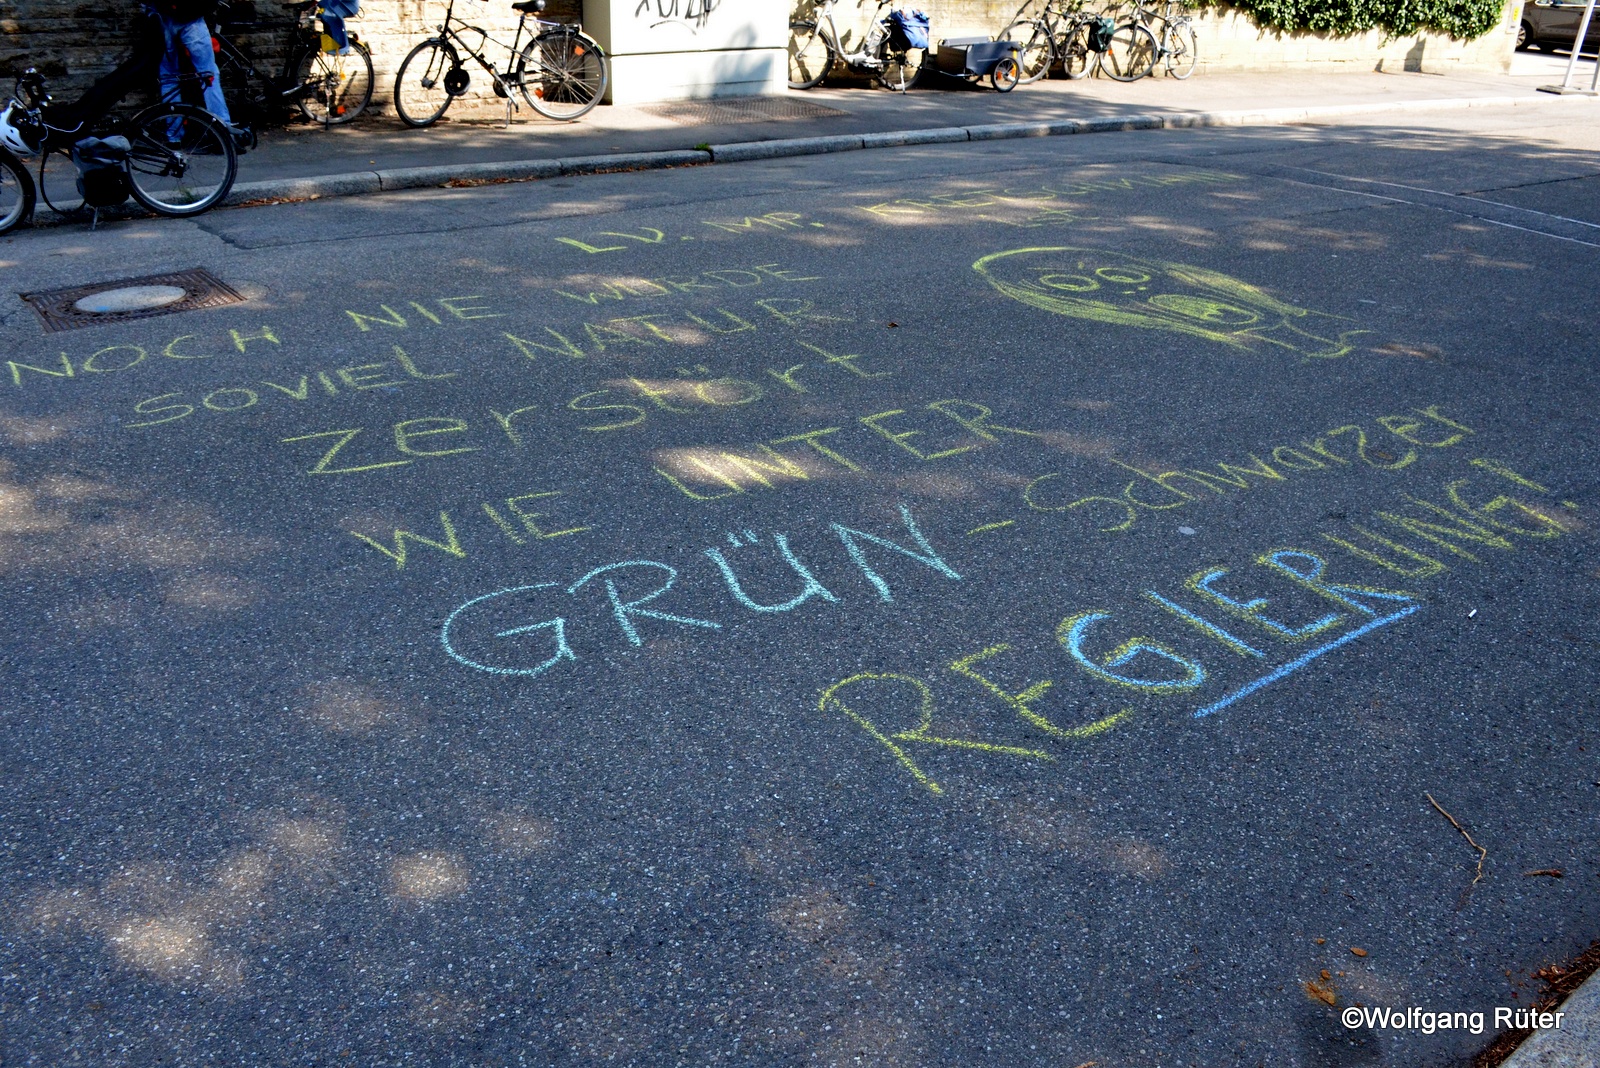 LV. MP. KRETSCHMANN
NOCH NIE WURDE
SOVIEL NATUR
zerstört
WIE UNTER
GRÜN-Schwarzer
REGIERUNG!
©Wolfgang Rüter